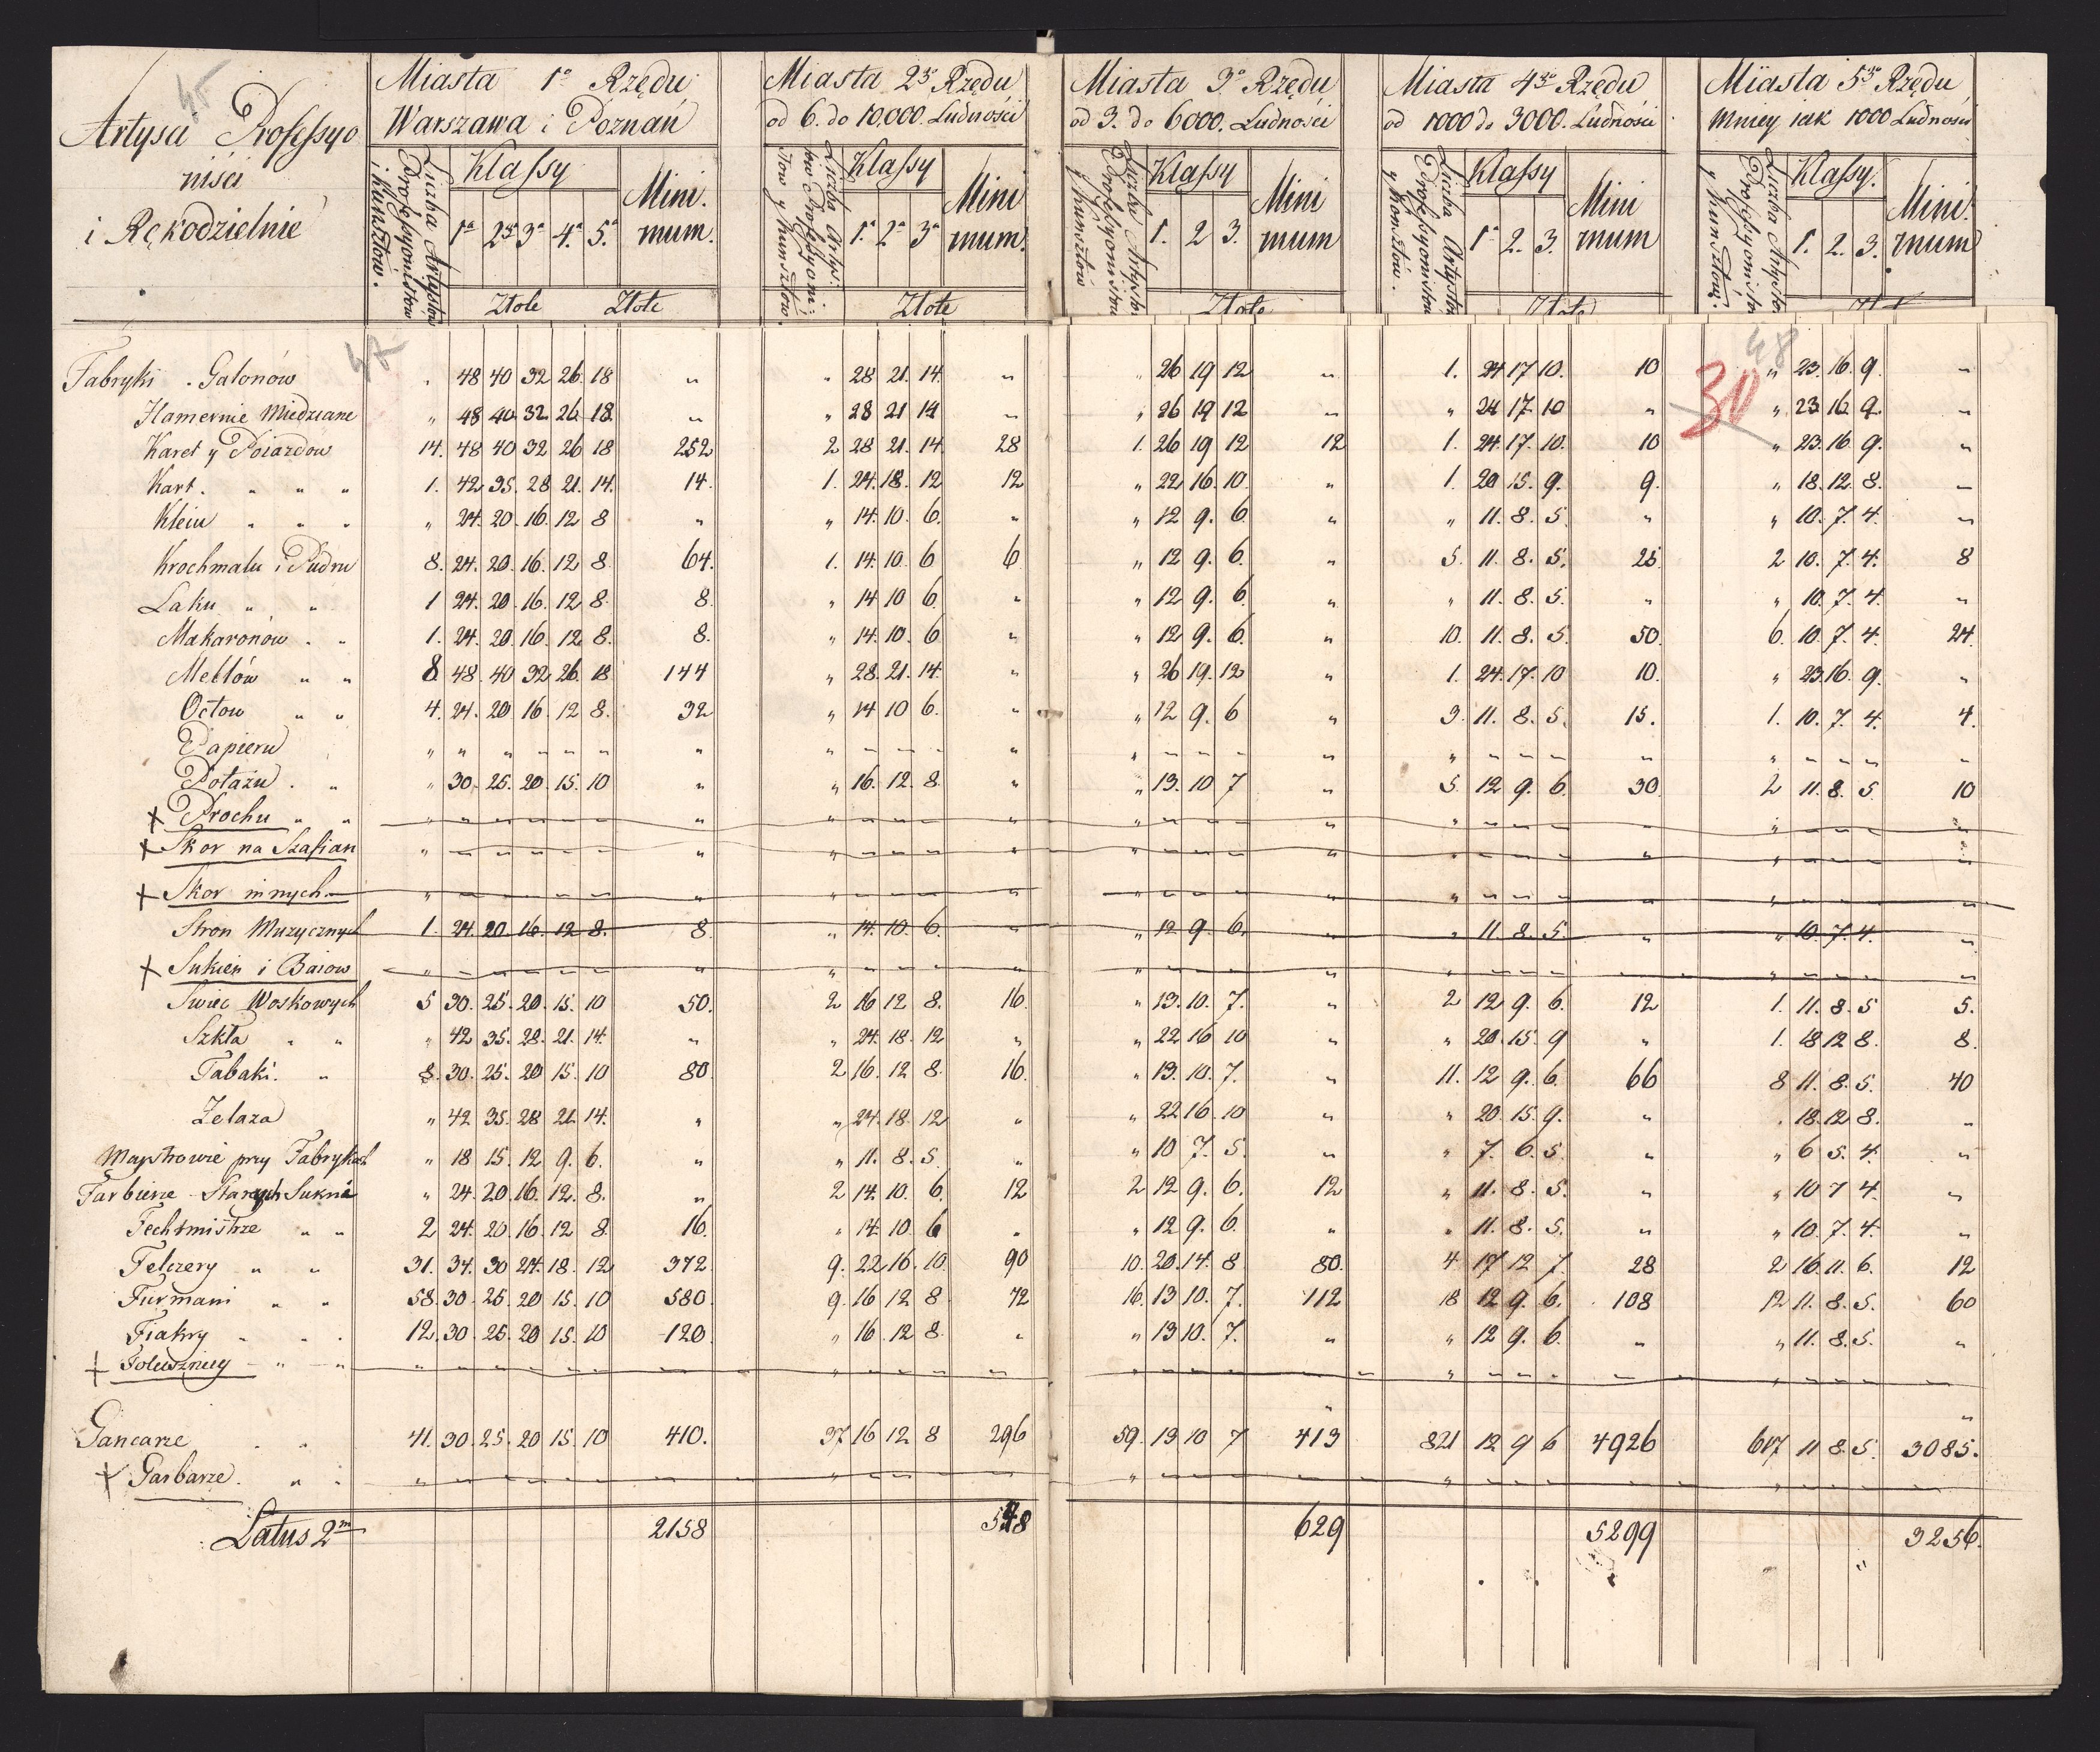 45
Artyści Professyo
niści
i Rękodzielnie
Miasta 1o Rzędu
Warszawa i Poznań
Liczba Artystów Professyonistów i Kunsztów.
Klassy
1a 2ga 3a 4a 5a
Mini.
mum.
Złote Złote
Miasta 2go Rzędu
od 6. do 10,000. Ludności
Liczba Artys: tów Professyoni: stow y Kunsztów.
Klassy
1a 2a 3a
Mini
mum.
Złote
Miasta 3o Rzędu
od 3. do 6000. Ludności
Liczba Artystów Professyonistów y Kunsztów
Klassy
1. 2 3.
Mini
mum
Złote
Miasta 4go Rzędu
od 1000 do 3000. Ludności
Liczba Artystów Professyonistów y Konsztów.
Klassy
1a 2. 3.
Mini
mum
Złote
Miasta 5go Rzędu
mniey iak 1000 Ludności
Liczba Artystów Professyonistów y Kunsztów.
Klassy.
1. 2. 3.
Mini.
mum
47
48
30
Fabryki . Galonów " 48 40 32 26. 18 " " 28 21. 14. " " 26 19 12 " 1. 24 17 10. 10 " 23. 16. 9. "
Hamernie Miedziane " 48 40 32. 26. 18. " " 28 21 14 " " 26 19 12 " " 24 17. 10 " " 23 16 9. "
Karet y Poiazdow 14. 48 40 32 26 18 252 2 28 21. 14. 28 1. 26 19 12 12 1. 24. 17. 10. 10 " 23. 16 9. "
Kart. " " " 1. 42 35. 28 21. 14. 14. 1. 24. 18. 12 12 " 22 16. 10. " 1. 20 15. 9. 9. " 18. 12. 8. "
Kleiu " " " " 24. 20. 16. 12 8 " " 14. 10. 6. " " 12 9. 6. " " 11. 8. 5. " " 10. 7. 4. "
Krochmalu i Pudru 8. 24. 20. 16. 12 8. 64. 1. 14. 10. 6 6 " 12 9. 6. " 5. 11. 8. 5. 25. 2 10. 7. 4. 8
Laku " " 1 24. 20. 16. 12 8. 8. " 14 10 6. " " 12 9. 6. " " 11. 8. 5. " " 10. 7. 4. "
Makaronów . " 1. 24. 20. 16. 12 8. 8. " 14. 10. 6 " " 12 9. 6. " 10. 11. 8. 5. 50. 6. 10. 7. 4. 24.
Meblów " " 8 48. 40 32 26. 18 144 " 28. 21. 14. " " 26 19. 12 " 1. 24. 17. 10 10. " 23. 16. 9. "
Octow " " 4. 24. 20 16. 12 8. 32 " 14 10 6. " " 12 9. 6 " 3. 11. 8. 5. 15. 1. 10. 7. 4. 4.
Papieru " " " " " " " " " " " " " " " " " " " " " " " " " "
Potażu . " " 30. 25. 20. 15. 10 " " 16. 12. 8. " " 13. 10 7 " 5. 12 9. 6. 30. 2 11. 8. 5. 10
+ Prochu " " " " " " " " " " " " " " " " " " " " " " " " " " " "
+ Skor na Szafian " " " " " " " " " " " " " " " " " " " " " " " " " "
+ Skor innych " " " " " " " " " " " " " " " " " " " " " " " " " "
Stron Muzycznych 1. 24. 20. 16. 12 8. 8. " 14. 10. 6. " " 12 9. 6. " " 11 8. 5. " " 10. 7. 4. "
+ Sukien i Baiow " " " " " " " " " " " " " " " " " " " " " " " " " "
Swiec Woskowych 5 30. 25. 20. 15. 10 50. 2 16 12 8. 16. " 13. 10. 7. " 2 12 9. 6. 12 1. 11. 8. 5 5.
Szkła " " " 42 35. 28. 21. 14. " " 24. 18. 12 " " 22 16 10 " " 20. 15. 9 " 1. 18 12 8. 8.
Tabaki. " 8. 30. 25. 20 15. 10 80 2 16. 12 8. 16. " 13. 10. 7. " 11. 12 9. 6. 66 8 11. 8. 5. 40
Żelaza " 42 35. 28 21. 14. " " 24. 18. 12 " " 22 16. 10 " " 20. 15. 9. " . 18. 12 8. "
Maystrowie przy Fabrykach " 18 15. 12 9. 6. " " 11. 8. 5. " " 10 7. 5. " " 7. 6. 5. " " 6 5. 4. "
Farbierze Starych Sukni " 24. 20. 16. 12. 8. " 2 14. 10. 6. 12 2 12 9. 6. 12 " 11. 8. 5. " " 10 7 4. "
Fechtmistrze " " 2 24. 20. 16. 12 8. 16. " 14. 10 6 " " 12 9. 6. " " 11. 8. 5. " " 10. 7. 4. "
Felczery " " 31. 34. 30 24. 18. 12 372 9. 22 16. 10. 90 10. 20. 14. 8 80. 4 17 12 7. 28 2 16. 11. 6. 12
Furmani " " 58. 30. 25. 20 15. 10 580. 9. 16 12 8 72 16. 13 10. 7. 112 18 12 9 6. 108 12 11. 8. 5. 60
Fiakry " " 12. 30. 25. 20 15. 10 120. " 16. 12 8. " " 13 10. 7. " " 12 9. 6. " " 11. 8. 5. "
+ Foluszniey " " " " " " " " " " " " " " " " " " " " " " " " " " " "
Gancarze . " 41. 30. 25. 20 15. 10 410. 37 16 12 8 296 59. 13 10 7 413 821 12 9 6 4926 617 11 8. 5. 3085.
+ Garbarze. " " " " " " " " " " " " " " " " " " " " " " " " " " " "
Latus 2m 2158 548 629 5299 3256.